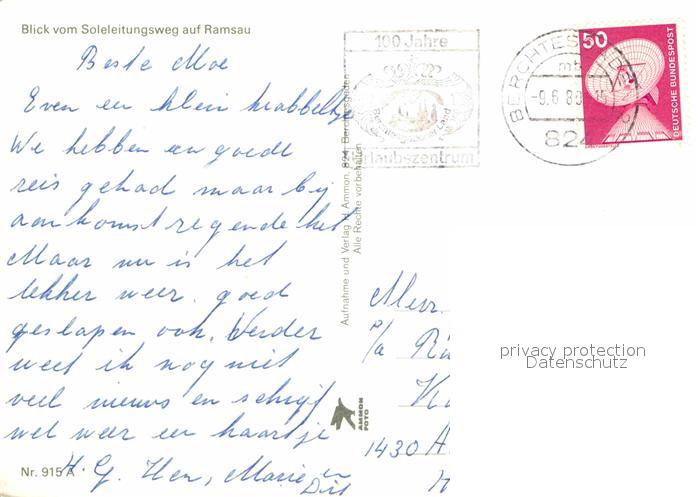 Blick vom Soleleitungsweg auf Ramsau
Beste Moe
Even een klein krabbeltje
We hebben een goede
reis gehad maar bij
aankomst regende het
Maar nu is het
lekker weer. goed
geslapen ook. Verder
weet ik nog niet
veel nieuws en schrijf
wel weer een kaartje
H. G. Hen, Marie en
Dit
Nr. 915 A
Aufnahme und Verlag M. Ammon, 824 Berchtesgaden
Alle Rechte vorbehalten
AMMON
FOTO
100 Jahre
Berchtesgadener Land
Urlaubszentrum
BERCHTESGADEN
mb
-9.6.8
824
50
DEUTSCHE BUNDESPOST
Mevr.
P/a
1430 A
privacy protection
Datenschutz